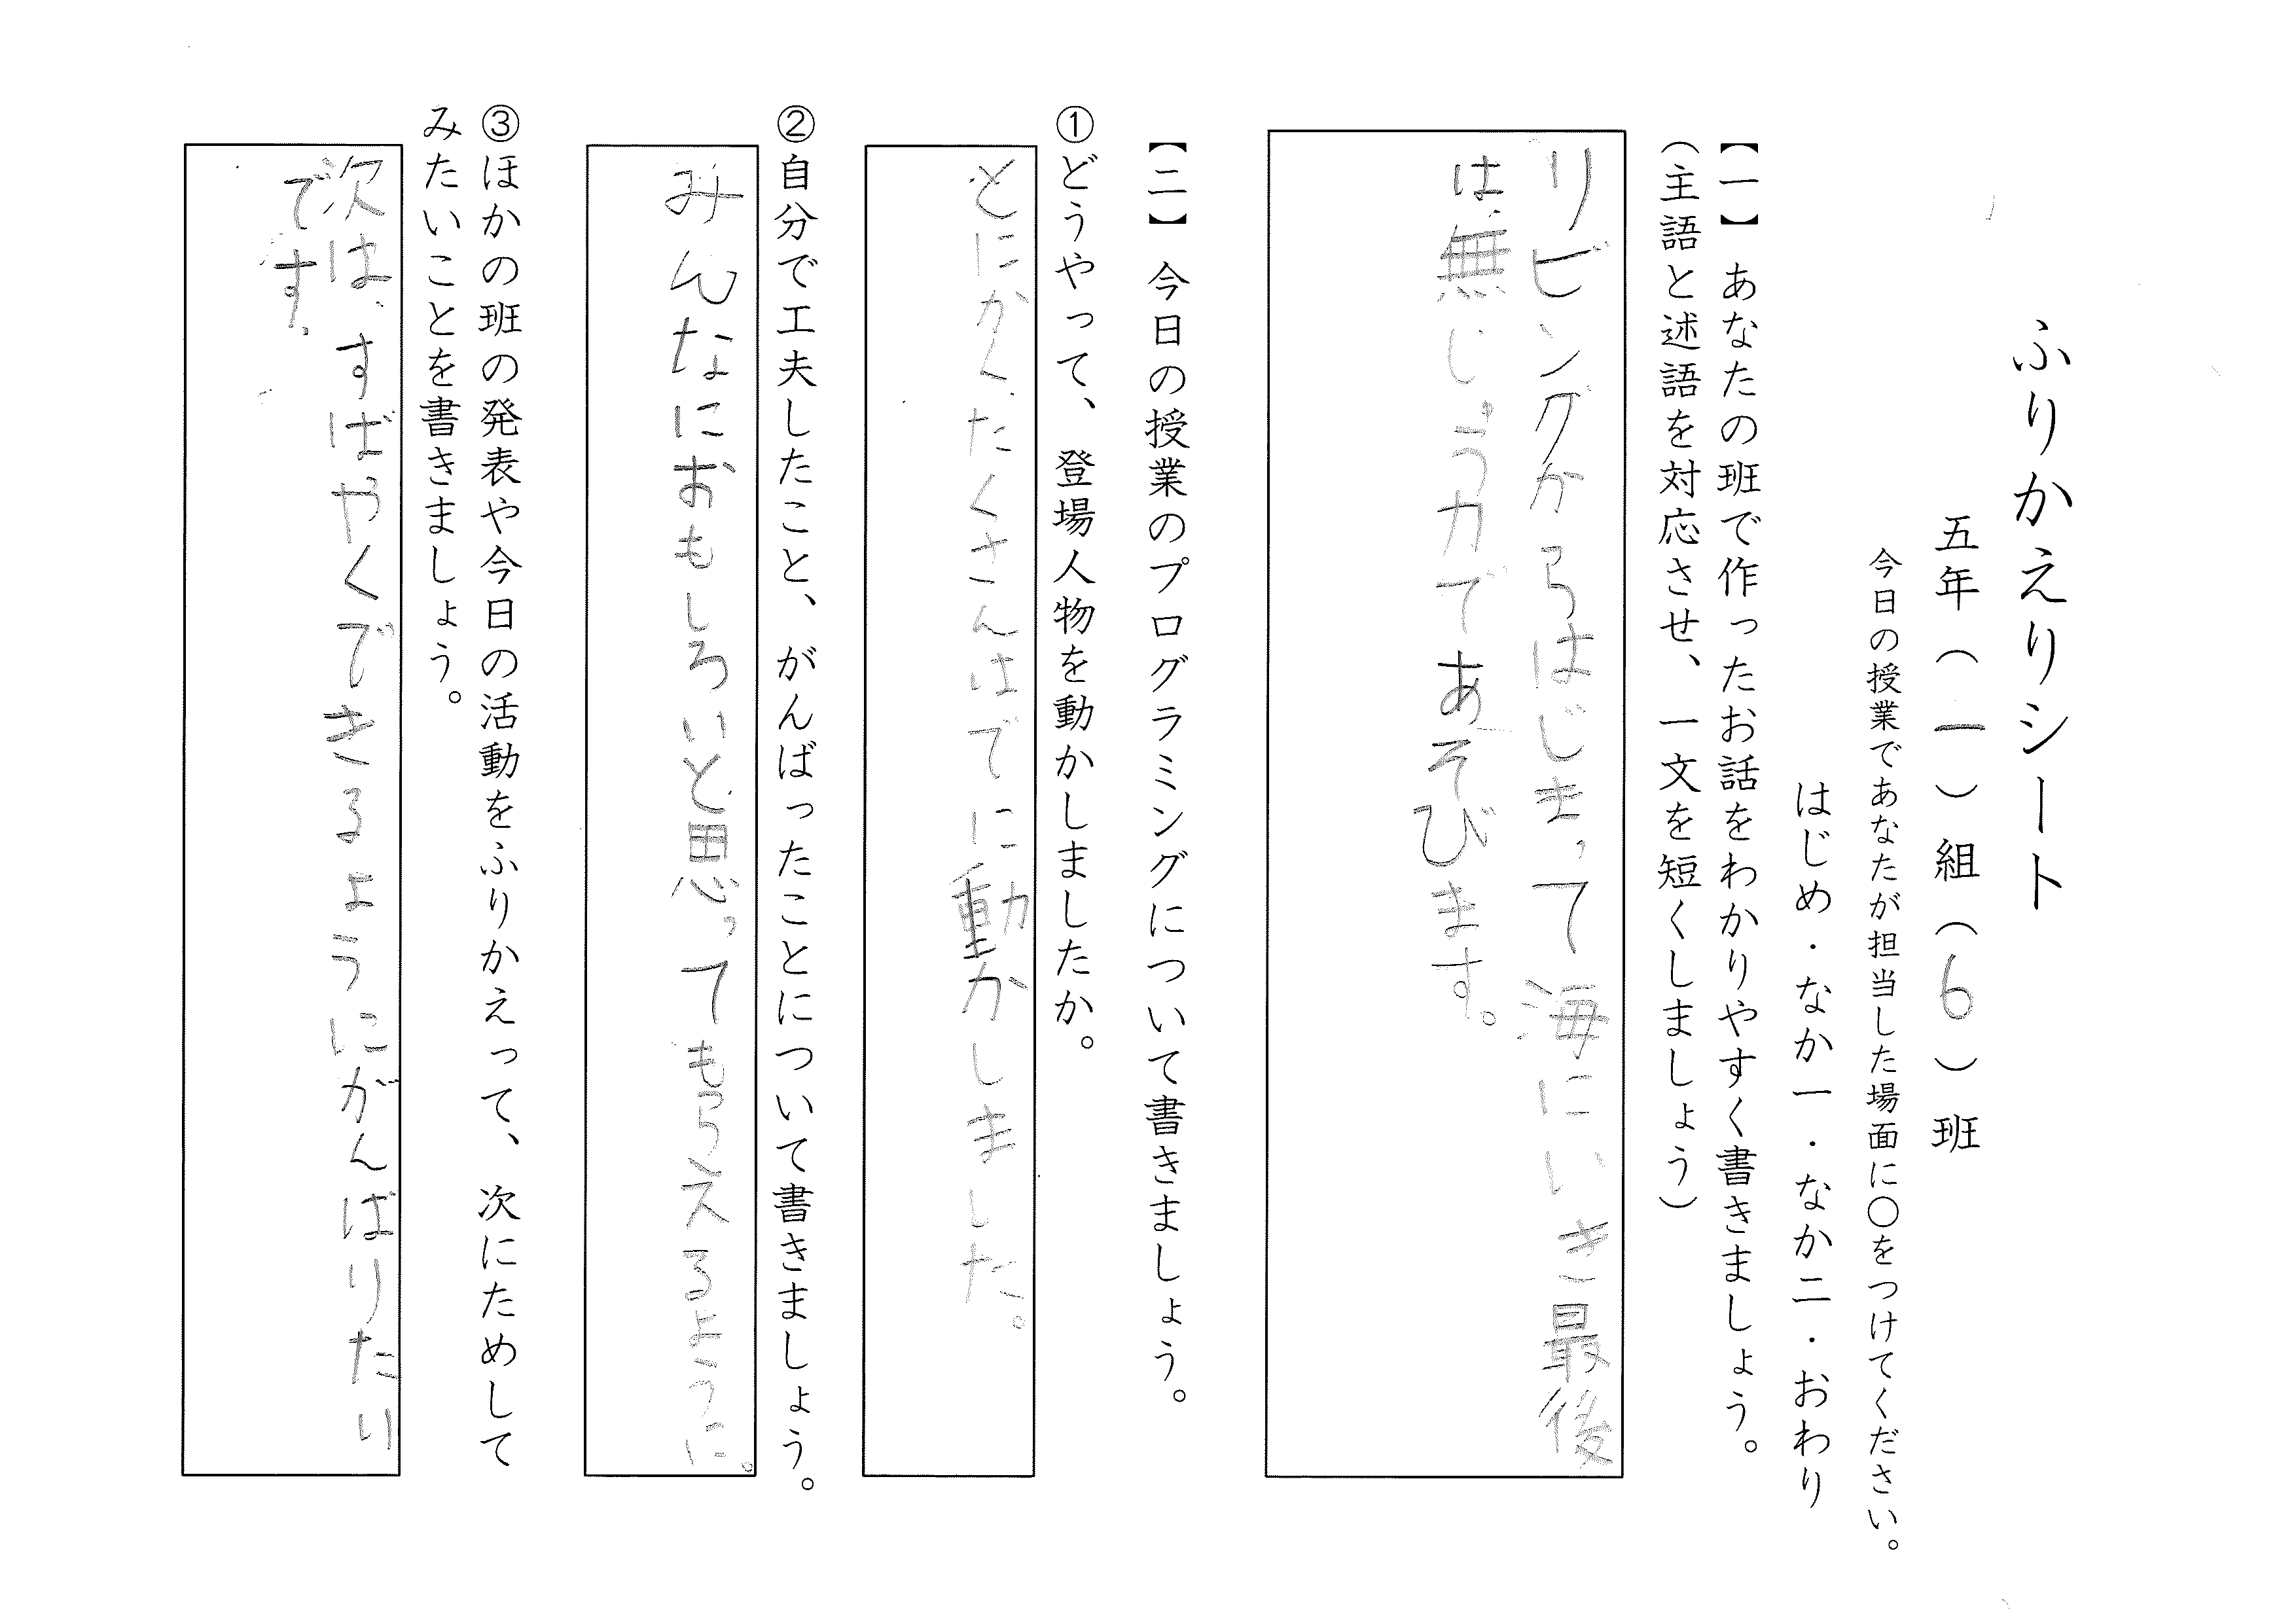 ふりかえりシート
五年(一)組(6)班
今日の授業であなたが担当した場面に〇をつけてください。
はじめ・なか一・なか二・おわり
【一】あなたの班で作ったお話をわかりやすく書きましょう。
(主語と述語を対応させ、一文を短くしましょう)
リビングからはじまって海にいき最後
は、無じゅう力であそびます。
【二】今日の授業のプログラミングについて書きましょう。
①どうやって、登場人物を動かしましたか。
とにかく、たくさんはでに動かしました。
②自分で工夫したこと、がんばったことについて書きましょう。
みんなにおもしろいと思ってもらえるように。
③ほかの班の発表や今日の活動をふりかえって、次にためして
みたいことを書きましょう。
次は、すばやくできるようにがんばりたい
です、